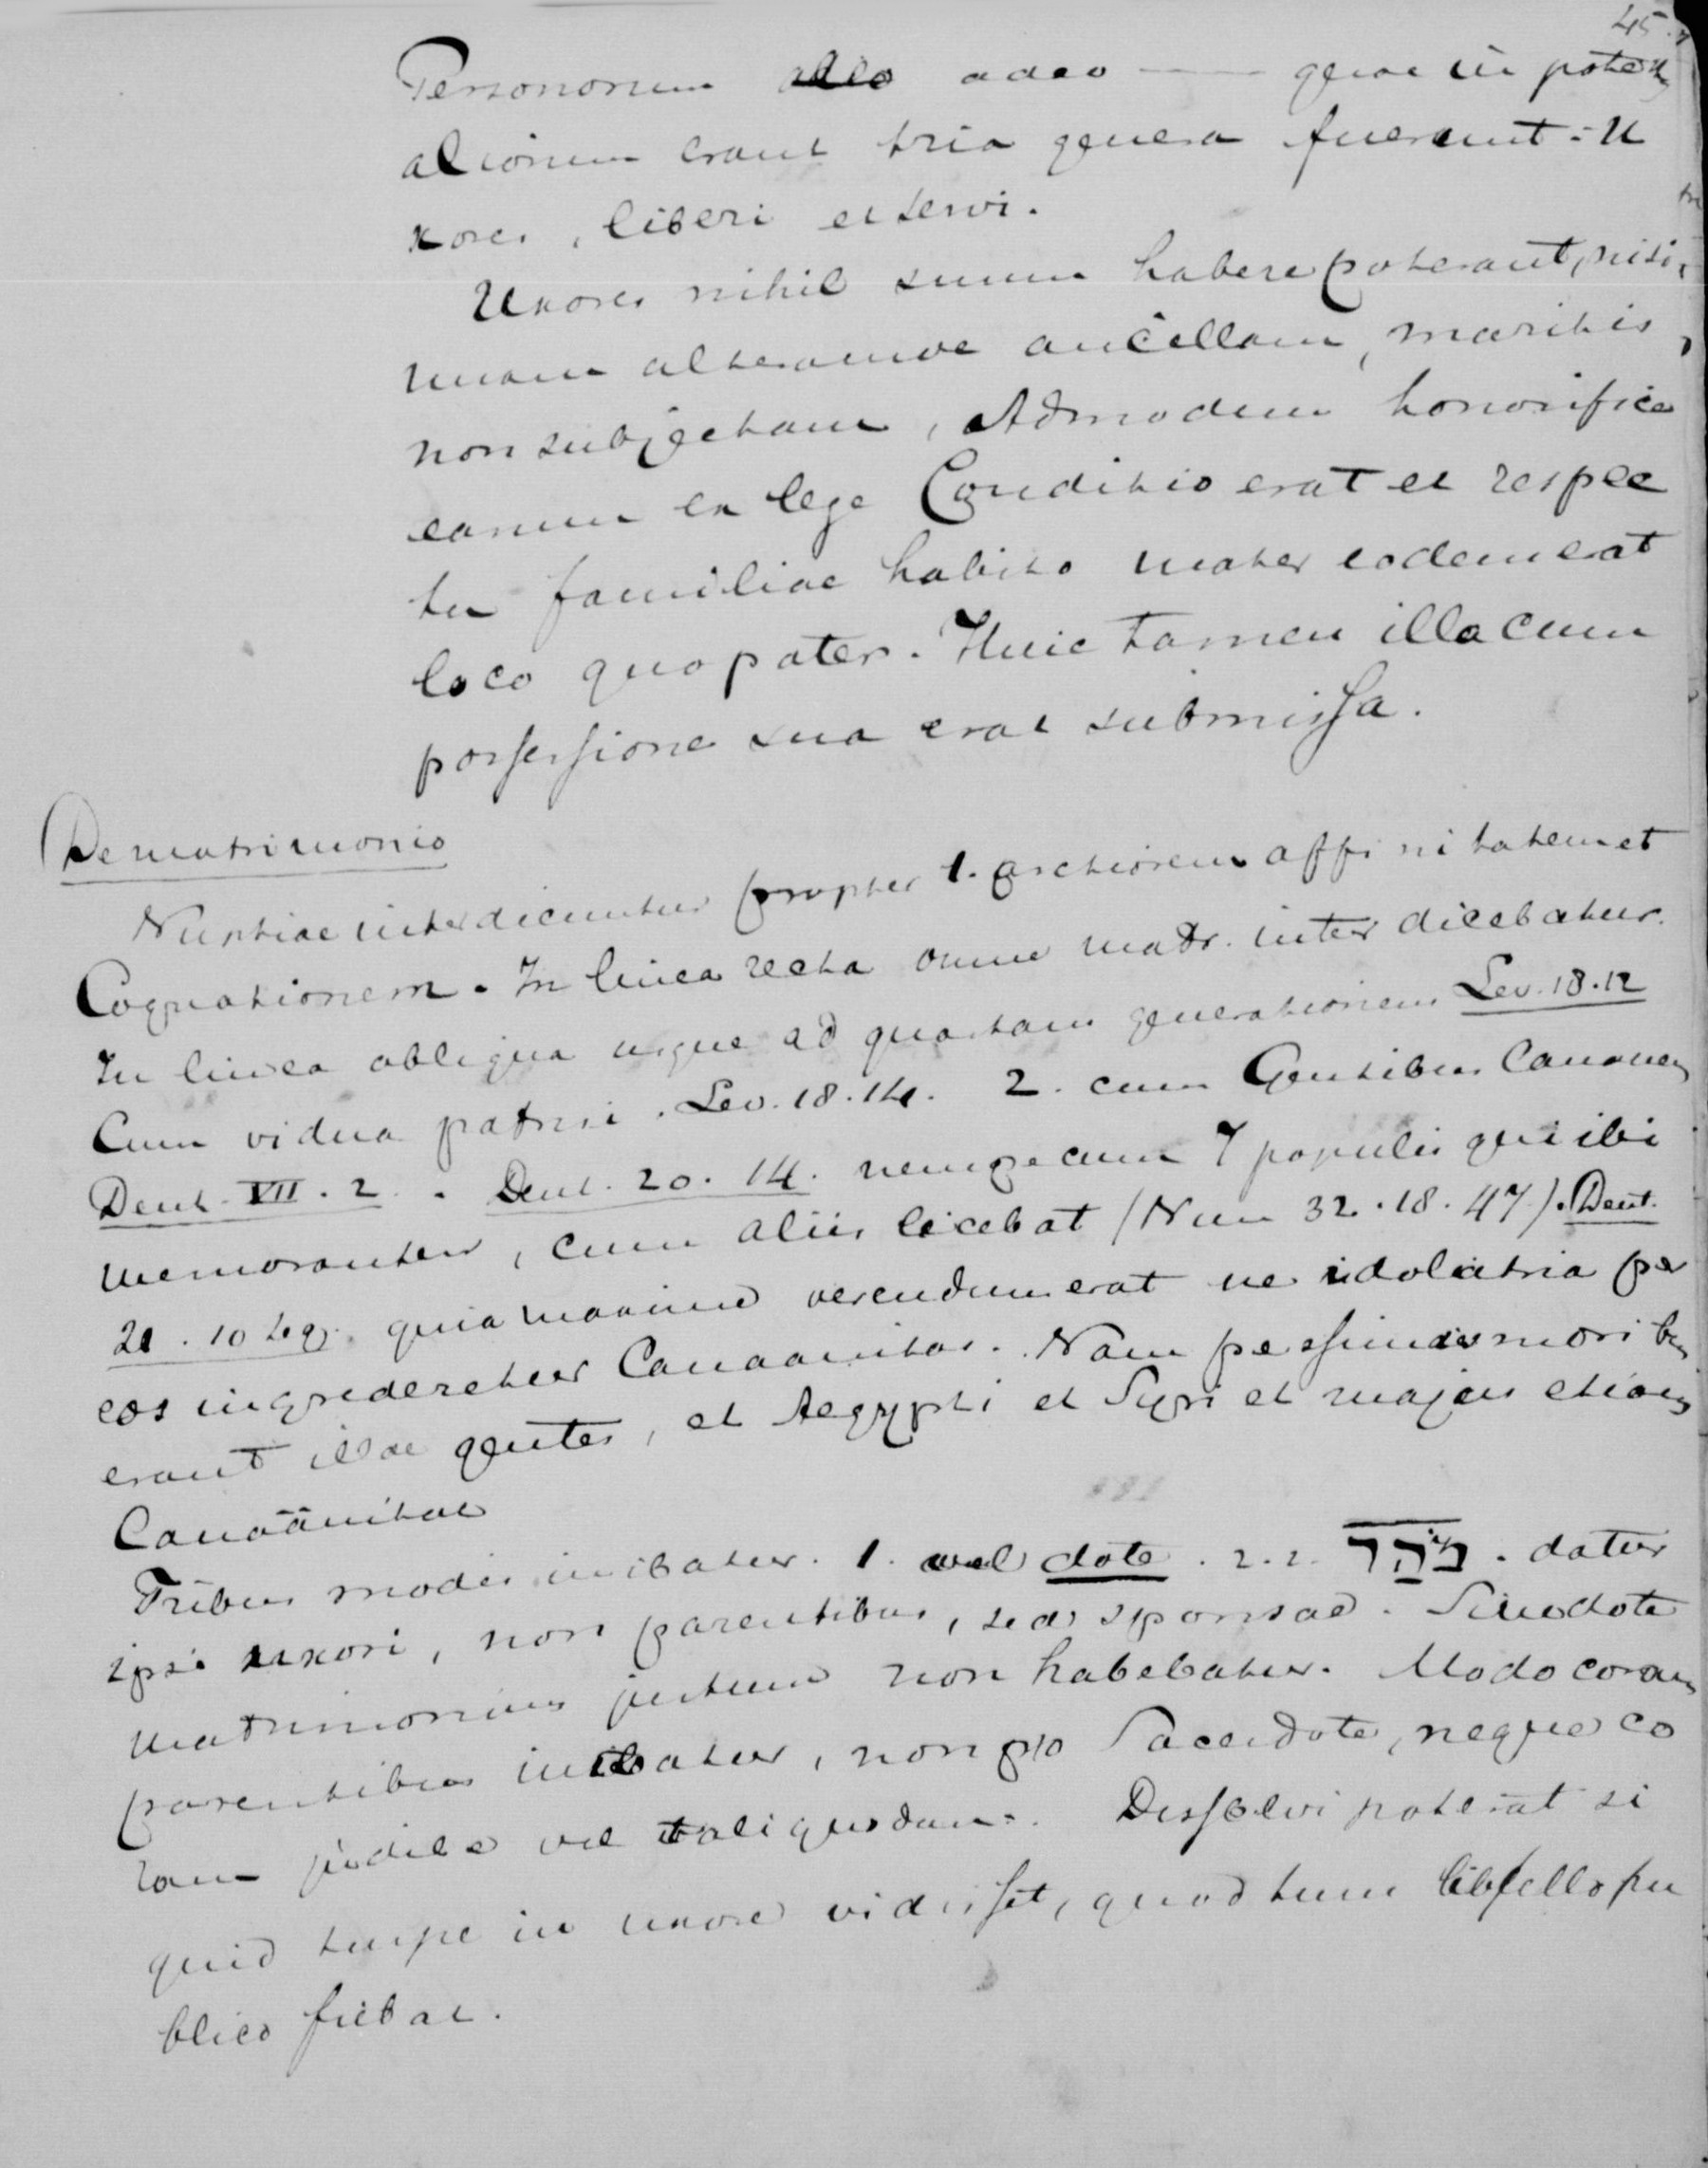 45.
Personorum adeo — quae in potest
aliorum erant tria genera fuerunt: U
xores, liberi et servi.
Uxores nihil suum habere poterant, nisi
unam alteramve ancillam, maritis
non subjectam, Admodum honorifica
earum ex lege Conditio erat et respec
tu familiae habito mater eodem erat
loco quo pater. Huic tamen illa cum
possessione sua erat submissa.
De matrimonio
Nuptiae interdicuntur propter 1. arctiorem affinitatem et
Cognationem. In linea recta omne matr. interdicebatur.
In linea obliqua usque ad quartam generationem Lev. 18.12
Cum vidua patrui. Lev. 18.14. 2. cum Gentibus Canaan
Deut. VII. 2. Deut. 20. 14. nempe cum 7 populis qui ibi
memorantur, cum aliis licebat (Num 32. 18. 47). Deut.
21. 10 sqq. quia maxime verendum erat ne idolatria per
eos ingrederetur Canaanitas. Nam pessimis moribus
erant illae gentes, et Aegypti et Syri et magis etiam
Canaänitae
Tribus modis inibatur. 1. vel dote. 2.2. מֹהַר. datur
ipsi uxori, non parentibus, sed sponsae. Sine dote
matrimonium justum non habebatur. Modo coram
parentibus inibatur, non pro Sacerdote, neque co
ram judice vel tali quodam. Dissolvi poterat si
quid turpe in uxore vidisset, quod tum libello pu
blico fiebat.